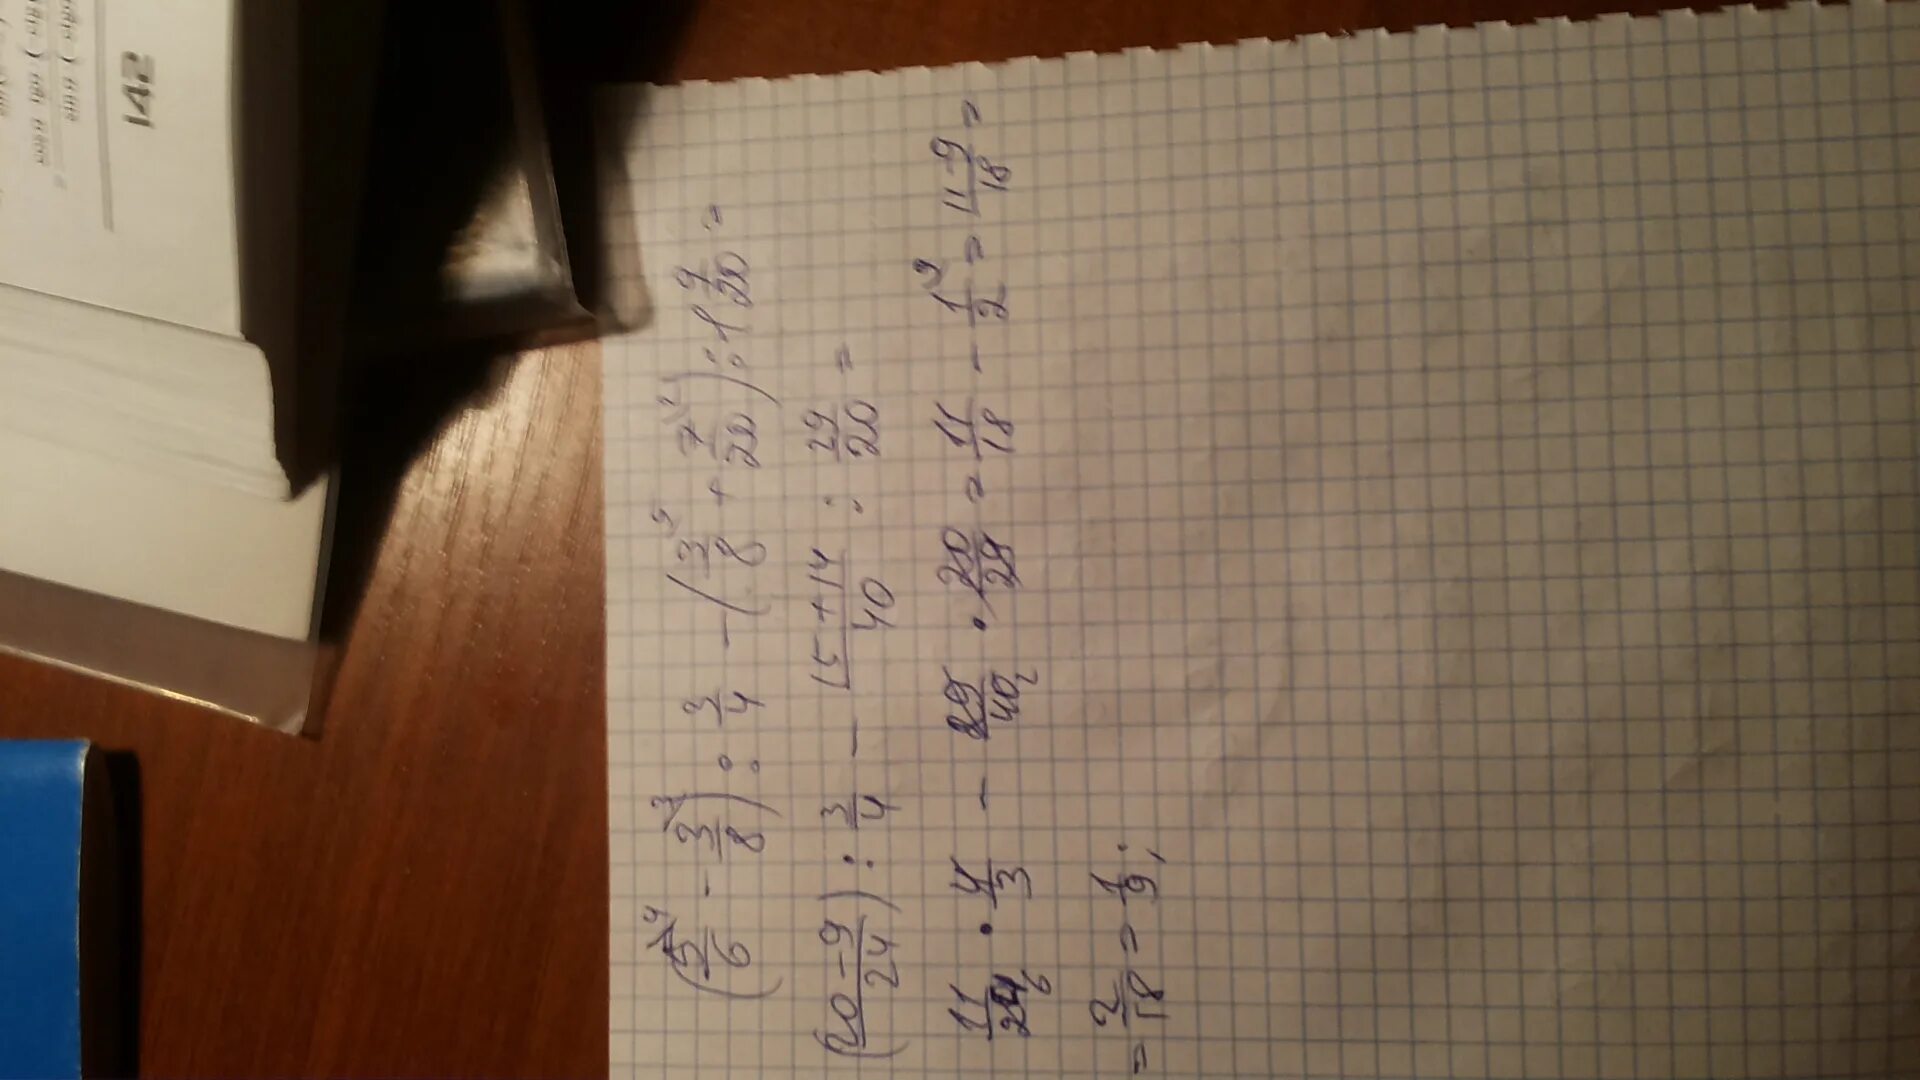 (5/6⁴ - 3/8³) : 3/4 - (3/8⁵ + 7/20²) : 1 9/20 =
(20-9/24) : 3/4 - 15+14/40 : 29/20 =
11/24₆ · 4/3 - 29/40₂ · 20/29 = 11/18 - 1/2⁹ = 11-9/18 =
= 2/18 = 1/9;
142